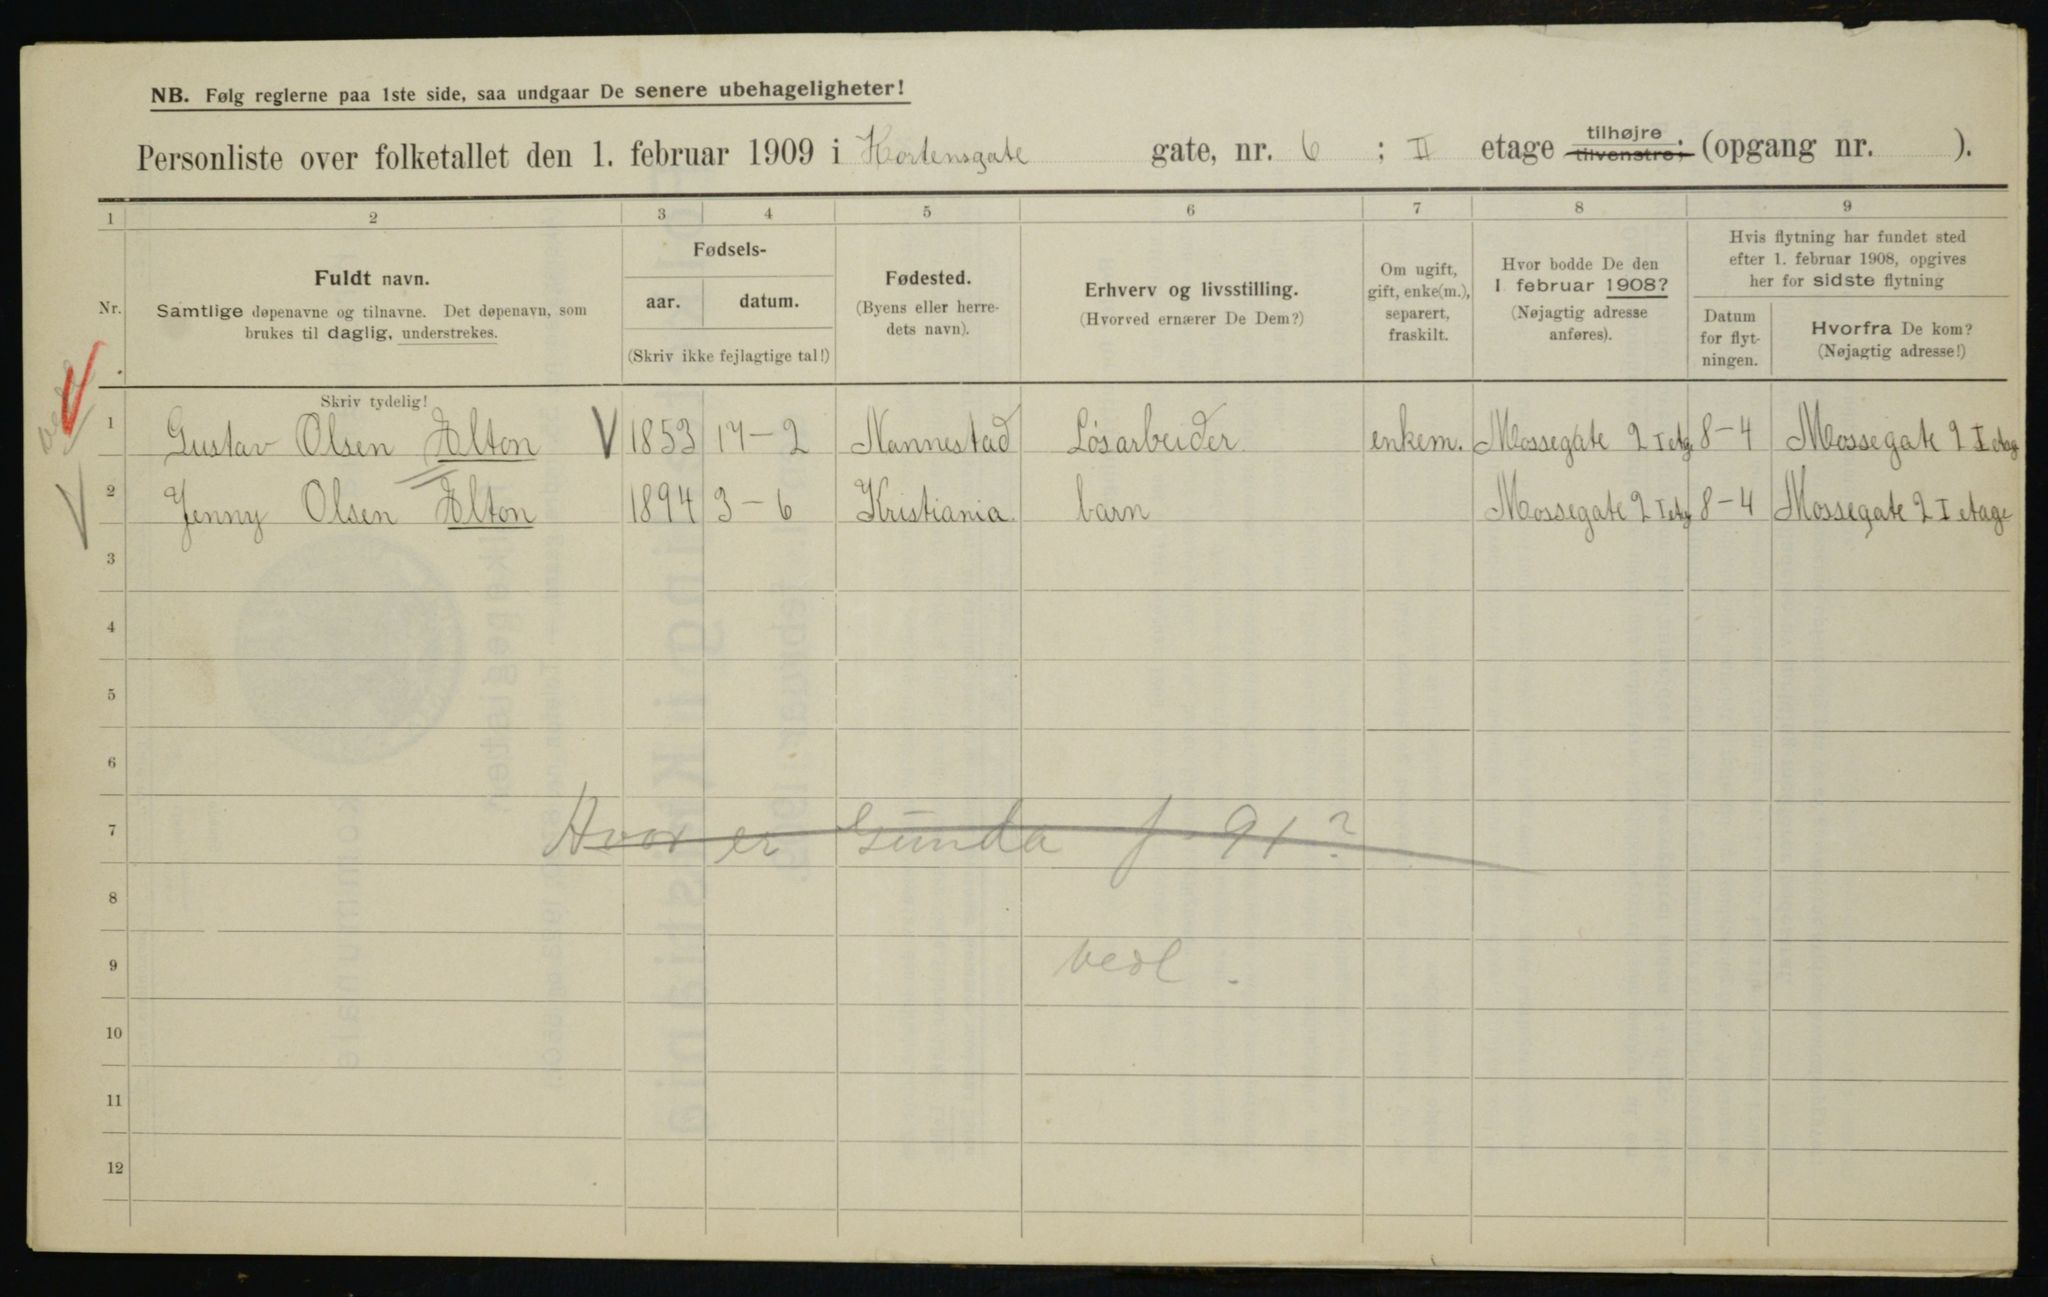 NB. Følg reglerne paa 1ste side, saa undgaar De senere ubehageligheter!
Personliste over folketallet den 1. februar 1909 i Hortensgate gate, nr. 6 ; II etage tilhøjre tilvenstre; (opgang nr. ).
1 2 3 4 5 6 7 8 9
Nr.
Fuldt navn.
Samtlige døpenavne og tilnavne. Det døpenavn, som
brukes til daglig, understrekes.
Fødsels-
aar. datum.
(Skriv ikke fejlagtige tal!)
Fødested.
(Byens eller herre-
dets navn).
Erhverv og livsstilling.
(Hvorved ernærer De Dem?)
Om ugift,
gift, enke(m.),
separert,
fraskilt.
Hvor bodde De den
1 februar 1908?
(Nøjagtig adresse
anføres).
Hvis flytning har fundet sted
efter 1. februar 1908, opgives
her for sidste flytning
Datum
for flyt-
ningen.
Hvorfra De kom?
(Nøjagtig adresse!)
Skriv tydelig!
1 Gustav Olsen Elton 1853 17-2 Nannestad Løsarbeider enkem. Mossegate 2 I etg 8-4 Mossegate 2 I etag
2 Jenny Olsen Elton 1894 3-6 Kristiania. barn Mossegate 2 I etg 8-4 Mossegate 2 I etage
3
4
5
6
7 Hvor er Gunda f. 91?
8
9 vedl.
10
11
12